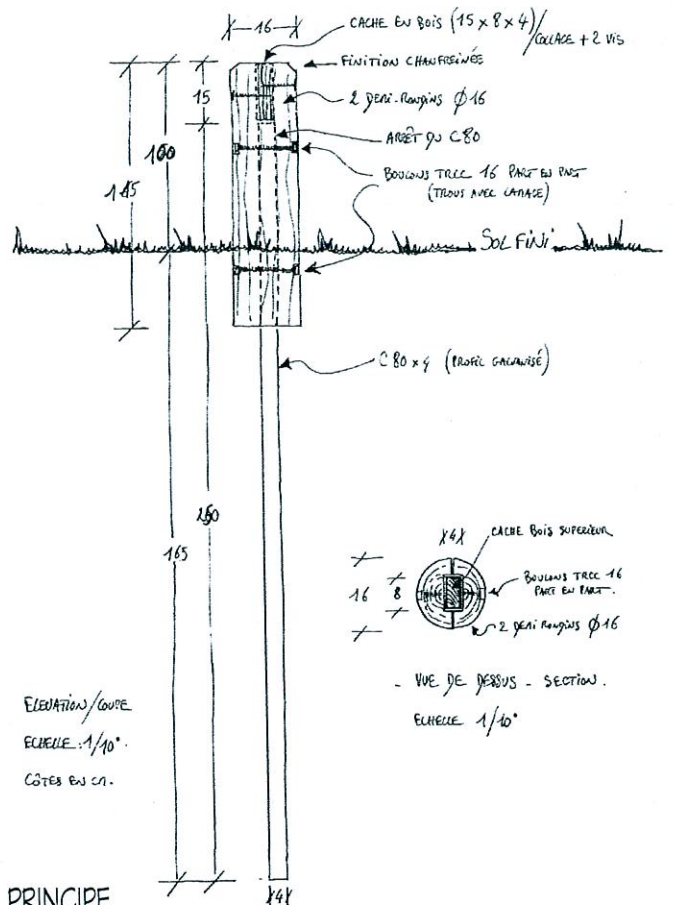 16
CACHE EN BOIS (15 x 8 x 4) / COLLAGE + 2 VIS
FINITION CHANFREINÉE
15
2 DEMI-RONDINS Ø16
100
ARRÊT DU C80
145
BOULONS TRCC 16 PART EN PART
(TROUS AVEC LAMAGE)
SOL FINI
C 80 x 4 (PROFIL GALVANISÉ)
250
165
X4X
CACHE BOIS SUPERIEUR
16
8
BOULONS TRCC 16
PART EN PART.
2 DEMI RONDINS Ø16
- VUE DE DESSUS - SECTION.
ECHELLE 1/10°
ELEVATION/COUPE
ECHELLE : 1/10°.
CÔTES EN CM.
PRINCIPE
X4X